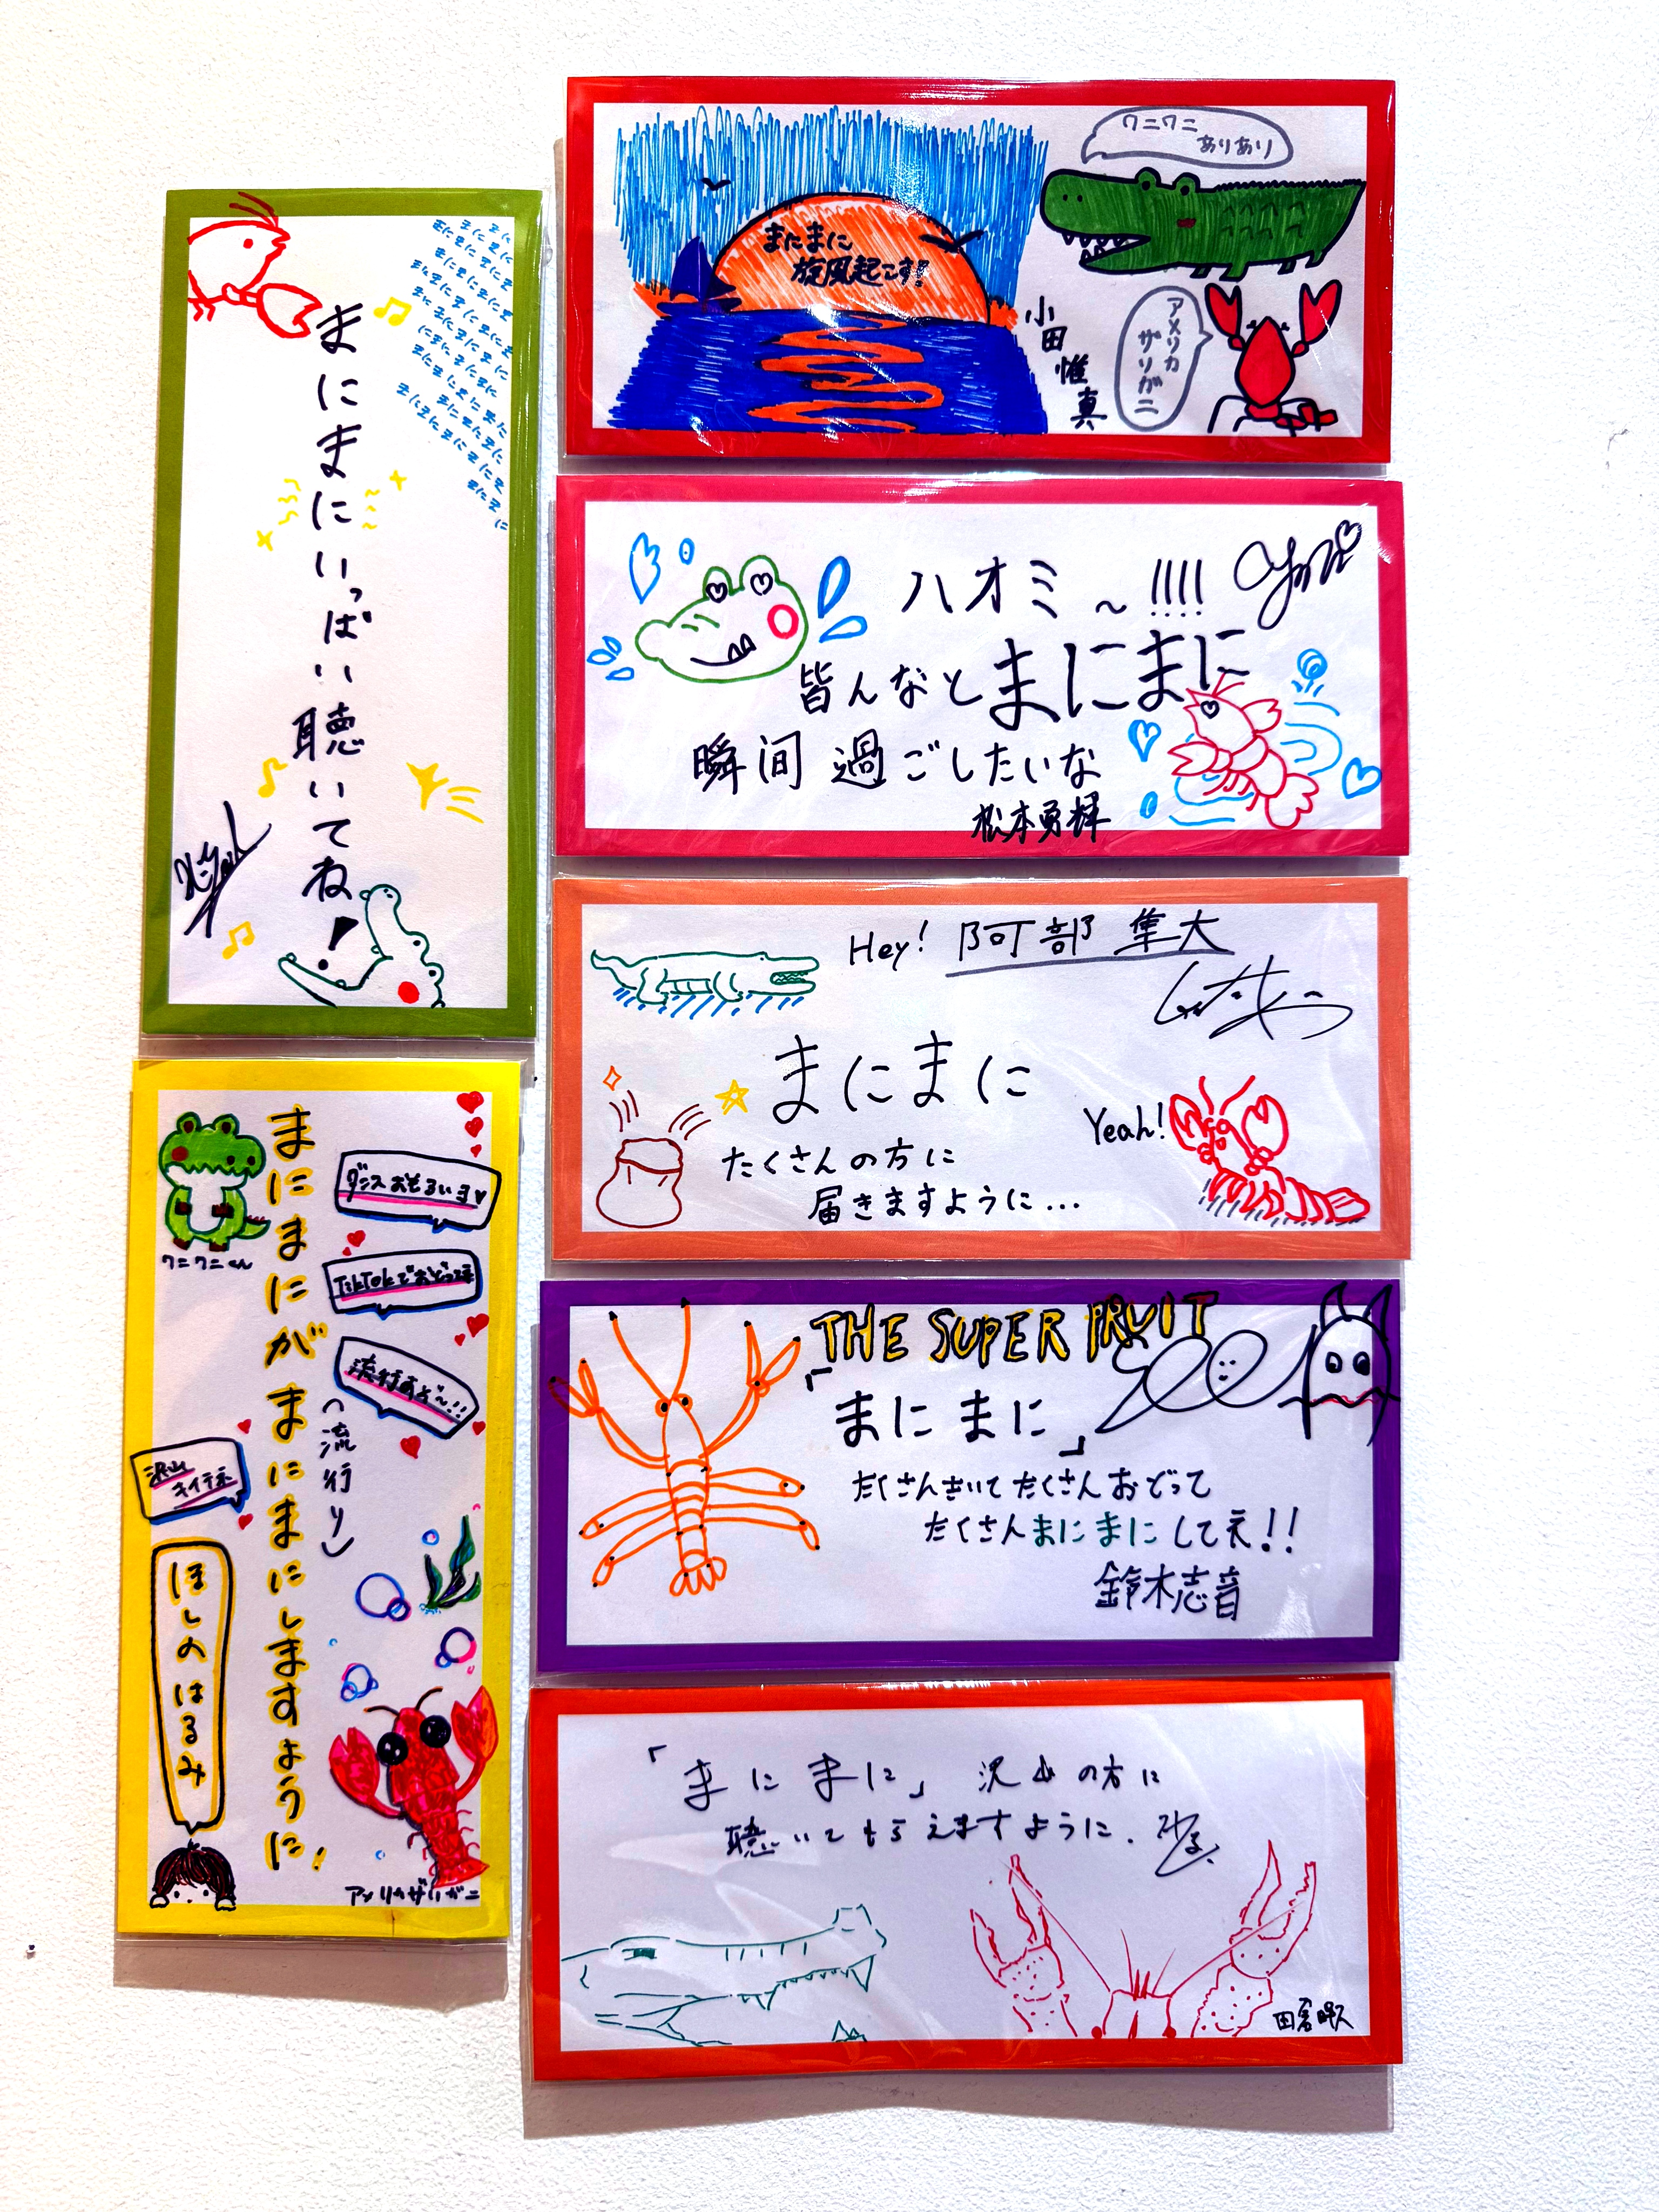 まにまにいっぱい聴いてね!
まにまにがまにまにしますように!
(流行り)
ダンスおもろいよ
TikTokでおどってネ
流行するぞ〜!!
沢山
キイテネ
ワニワニくん
ほしのはるみ
アメリカザリガニ
まにまに
旋風起こす!
ワニワニ
ありあり
アメリカ
ザリガニ
小田惟真
ハオミ〜!!!!
皆んなとまにまに
瞬间過ごしたいな
松本勇輝
Hey! 阿部隼大
まにまに
Yeah!
たくさんの方に
届きますように...
THE SUPER FRUIT
「まにまに」
たくさんきいてたくさんおどって
たくさんまにまにしてえ!!
鈴木志音
「まにまに」沢山の方に
聴いてもらえますように.
田倉暉久